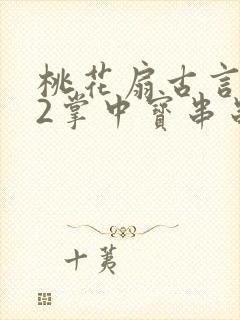 桃花扇古言
2掌中寶串
十荑